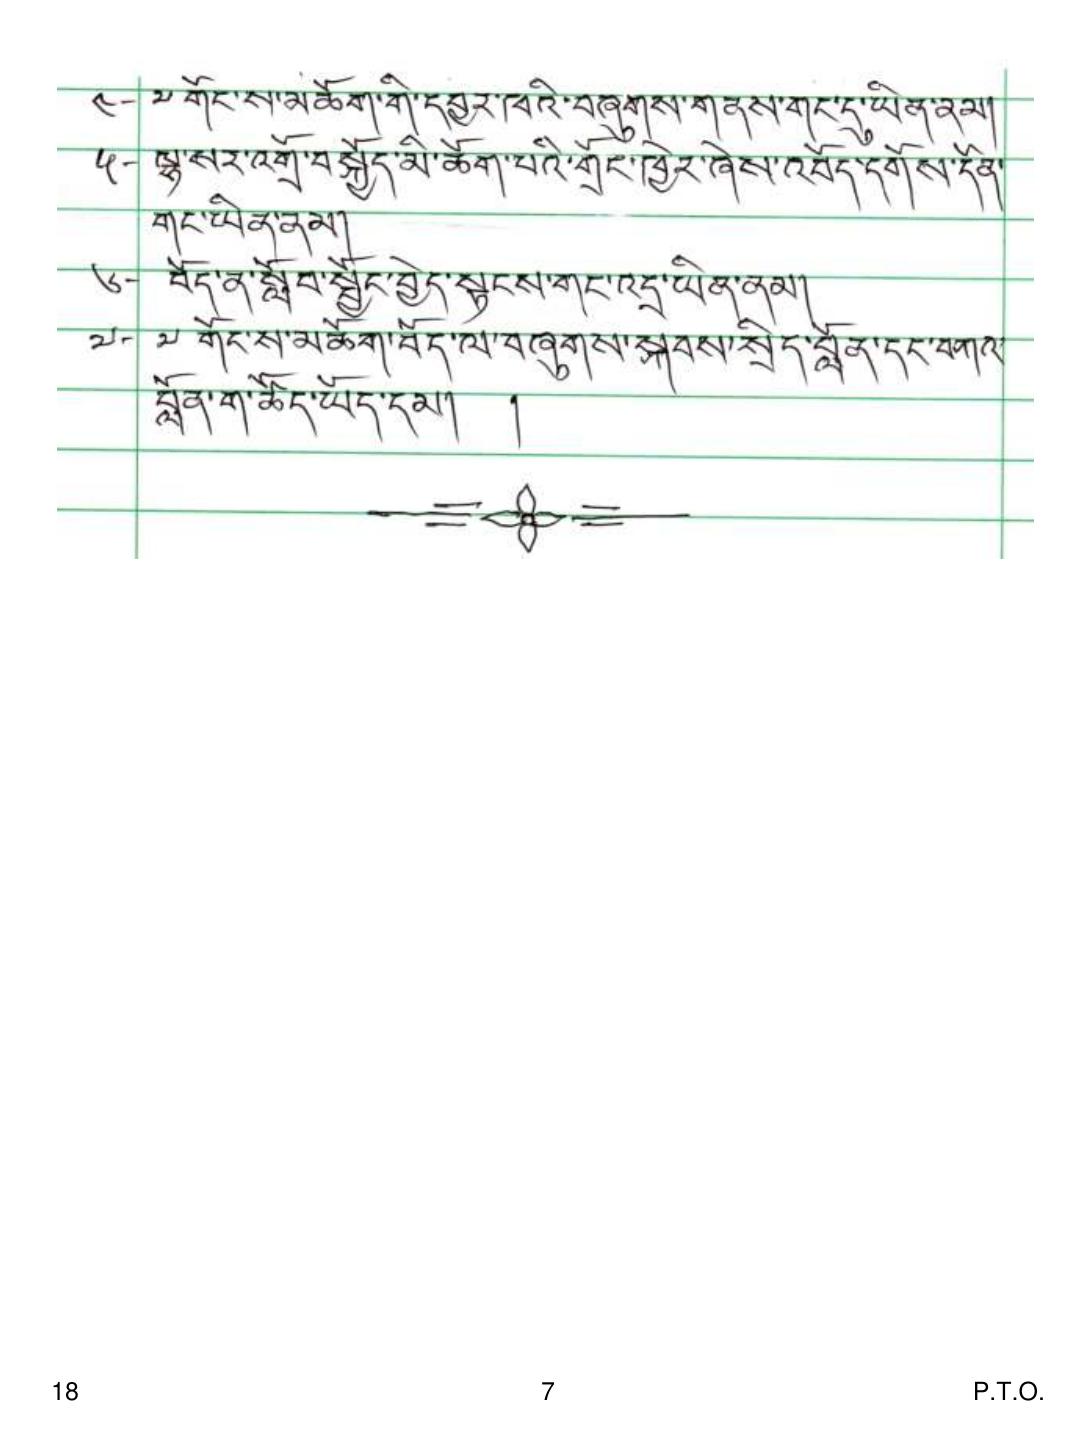 ༤- ༧ གོང་ས་མཆོག་གི་དབྱར་ཁའི་བཞུགས་གནས་གང་དུ་ཡིན་ནམ།
༥- ལྷ་སར་འགྲོ་བསྐྱོད་མི་ཆོག་པའི་གྲོང་ཁྱེར་ཞེས་འབོད་དགོས་དོན་
གང་ཡིན་ནམ།
༦- བོད་ན་སློབ་སྦྱོང་བྱེད་སྟངས་གང་འདྲ་ཡིན་ནམ།
༧- ༧ གོང་ས་མཆོག་བོད་ལ་བཞུགས་སྐབས་སྲིད་བློན་དང་བཀའ་
བློན་ག་ཚོད་ཡོད་དམ། །
18 7 P.T.O.